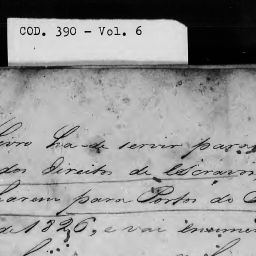 COD. 390 - Vol. 6
ivro ha de servir para
dos Direitos de Escravos
para Portos do
1826, e vai